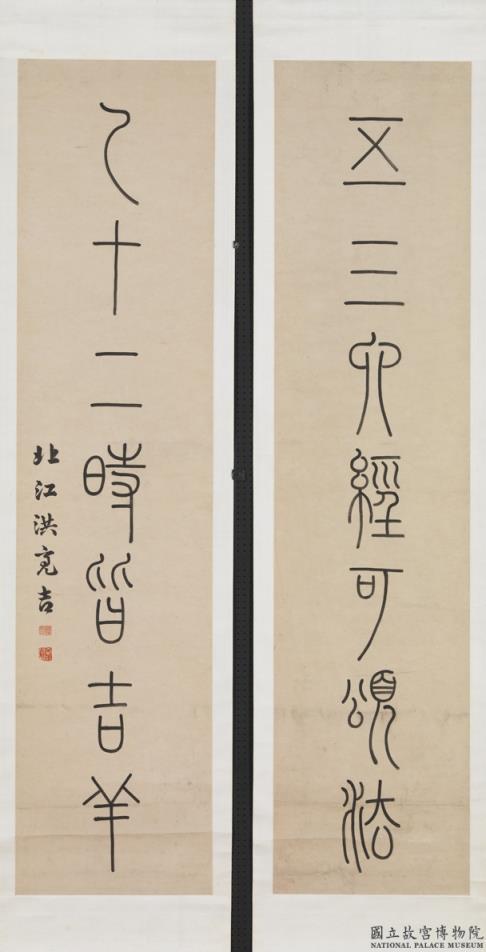 五三六經可頌法
乙十二時皆吉羊
北江洪亮吉
國立故宮博物院
NATIONAL PALACE MUSEUM